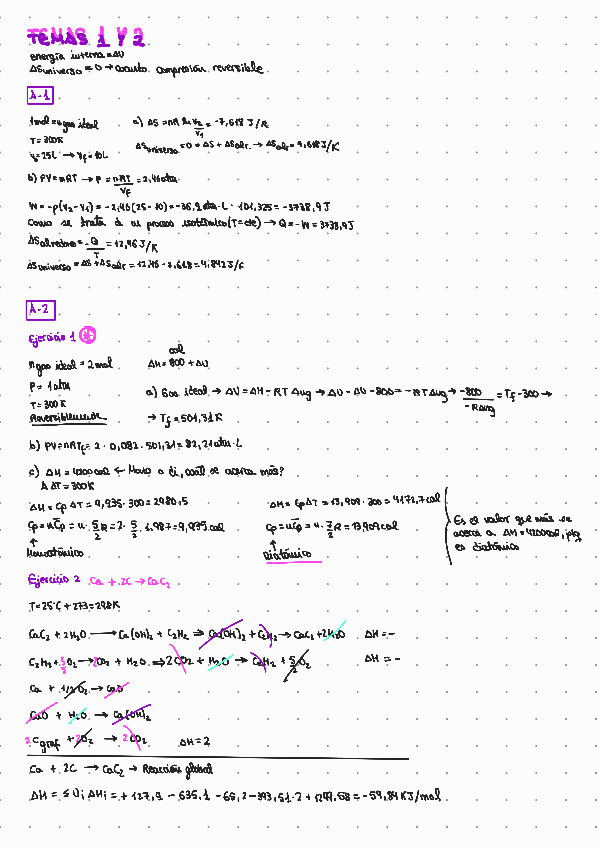 TEMAS 1 Y 2
energía interna = ΔU
ΔSuniverso = 0 → cuando compresión reversible
A-1
1mol = n gas ideal a) ΔS = nR ln V2/V1 = -7,618 J/K
T = 300K ΔSuniverso = 0 = ΔS + ΔSalr. → ΔSalr = 7,618 J/K
Vi = 25L → Vf = 10L
b) PV = nRT → P = nRT/Vf = 2,46 atm
W = -p(V2-V1) = -2,46(25-10) = -36,9 atm·L · 101,325 = -3738,9J
Como se trata de un proceso isotérmico (T=cte) → Q = -W = 3738,9J
ΔSalrededores = -Q/T = 12,46 J/K
ΔSuniverso = ΔS + ΔSalr = 12,46 - 7,618 = 4,842 J/K
A-2
Ejercicio 1
n gas ideal = 2 mol ΔH = 800 + ΔU cal
P = 1 atm
a) Gas ideal → ΔU = ΔH - RTΔng → ΔU - ΔU - 800 = -RTΔng → -800/-RΔng = Tf - 300 →
T = 300K
Reversiblemente → Tf = 501,31K
b) PV = nRTf = 2 · 0,082 · 501,31 = 82,21 atm·L
c) ΔH = 4200 cal ← Mono o di, cuál se acerca más?
A ΔT = 300K
ΔH = Cp ΔT = 9,935 · 300 = 2980,5 ΔH = Cp ΔT = 13,909 · 300 = 4172,7 cal
Cp = nCp = n · 5/2 R = 2 · 5/2 · 1.987 = 9,935 cal Cp = nCp = n · 7/2 R = 13,909 cal
↑ ↑
Monoatómico Diatómico
Es el valor que más se
acerca a ΔH = 4200 cal, ptq
es diatómico
Ejercicio 2 Ca + 2C → CaC2
T = 25°C + 273 = 298K
CaC2 + 2H2O → Ca(OH)2 + C2H2 ⇒ Ca(OH)2 + C2H2 → CaC2 + 2H2O ΔH = -
C2H2 + 5/2 O2 → 2CO2 + H2O ⇒ 2CO2 + H2O → C2H2 + 5/2 O2 ΔH = -
Ca + 1/2O2 → CaO
CaO + H2O → Ca(OH)2
2 Cgraf + 2O2 → 2CO2 ΔH = 2
Ca + 2C → CaC2 → Reacción global
ΔH = ≤ Ui ΔHi = + 127,9 - 635,1 - 65,2 - 393,51·2 + 1299,58 = -59,84 KJ/mol